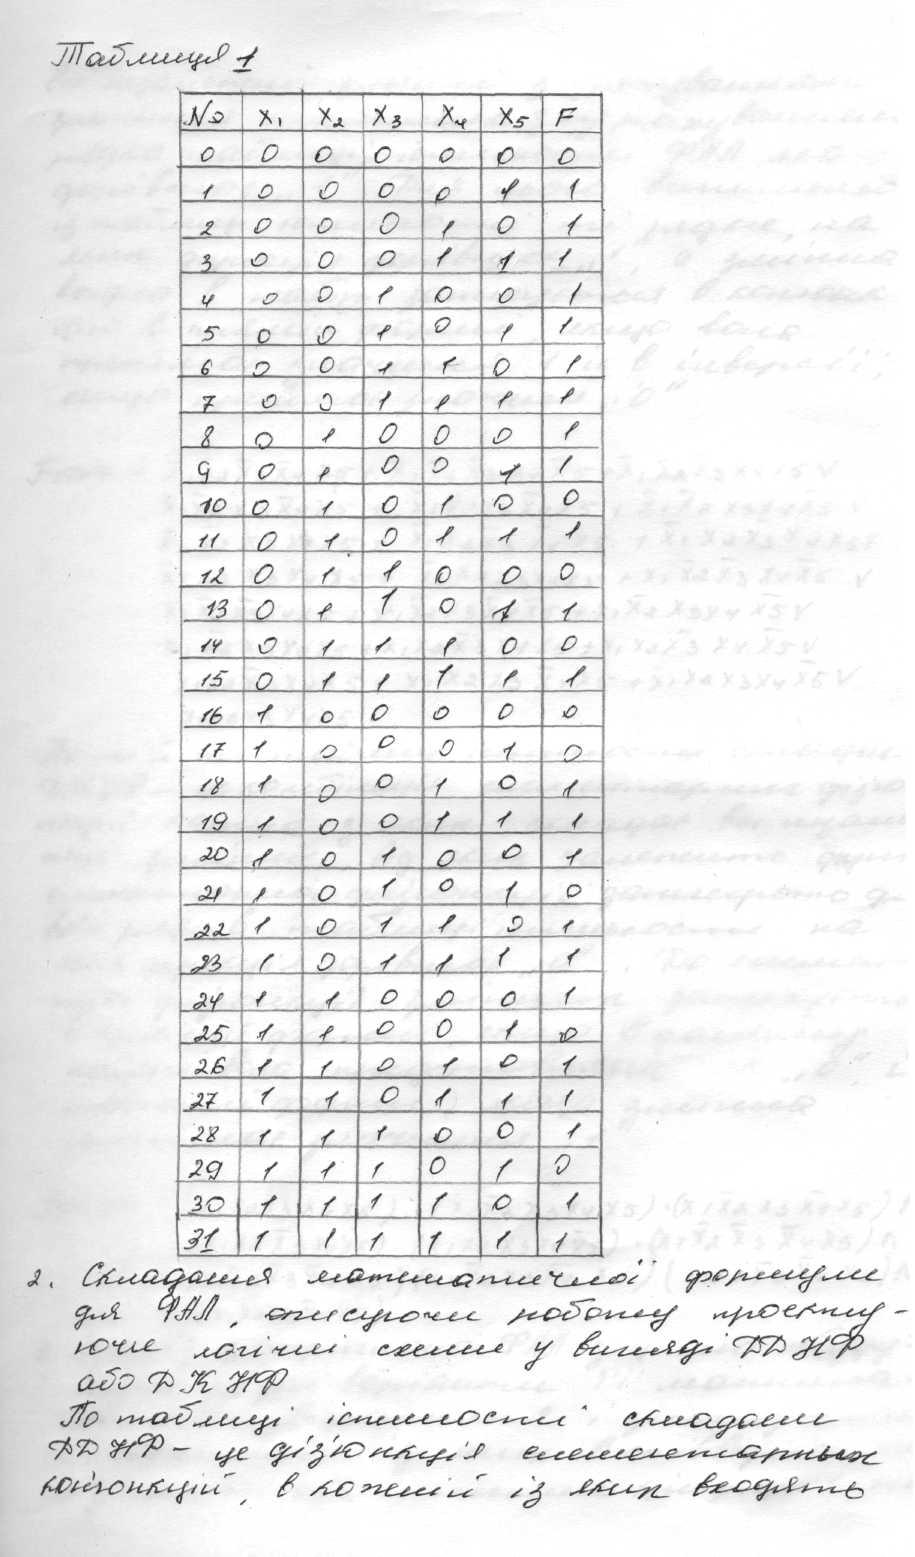 Таблиця 1
№ X1 X2 X3 X4 X5 F
0 0 0 0 0 0 0
1 0 0 0 0 1 1
2 0 0 0 1 0 1
3 0 0 0 1 1 1
4 0 0 1 0 0 1
5 0 0 1 0 1 1
6 0 0 1 1 0 1
7 0 0 1 1 1 1
8 0 1 0 0 0 1
9 0 1 0 0 1 1
10 0 1 0 1 0 0
11 0 1 0 1 1 1
12 0 1 1 0 0 0
13 0 1 1 0 1 1
14 0 1 1 1 0 0
15 0 1 1 1 1 1
16 1 0 0 0 0 0
17 1 0 0 0 1 0
18 1 0 0 1 0 1
19 1 0 0 1 1 1
20 1 0 1 0 0 1
21 1 0 1 0 1 0
22 1 0 1 1 0 1
23 1 0 1 1 1 1
24 1 1 0 0 0 1
25 1 1 0 0 1 0
26 1 1 0 1 0 1
27 1 1 0 1 1 1
28 1 1 1 0 0 1
29 1 1 1 0 1 0
30 1 1 1 1 0 1
31 1 1 1 1 1 1
2. Складання математичної формули
для ФАЛ, описуючи роботу проекту-
ючие логічні схеми у вигляді ДДНФ
або ДКНФ
По таблиці істиності складаєм
ДДНФ - це дізюнкція елементарных
конюнкцій, в кожній із яких входять